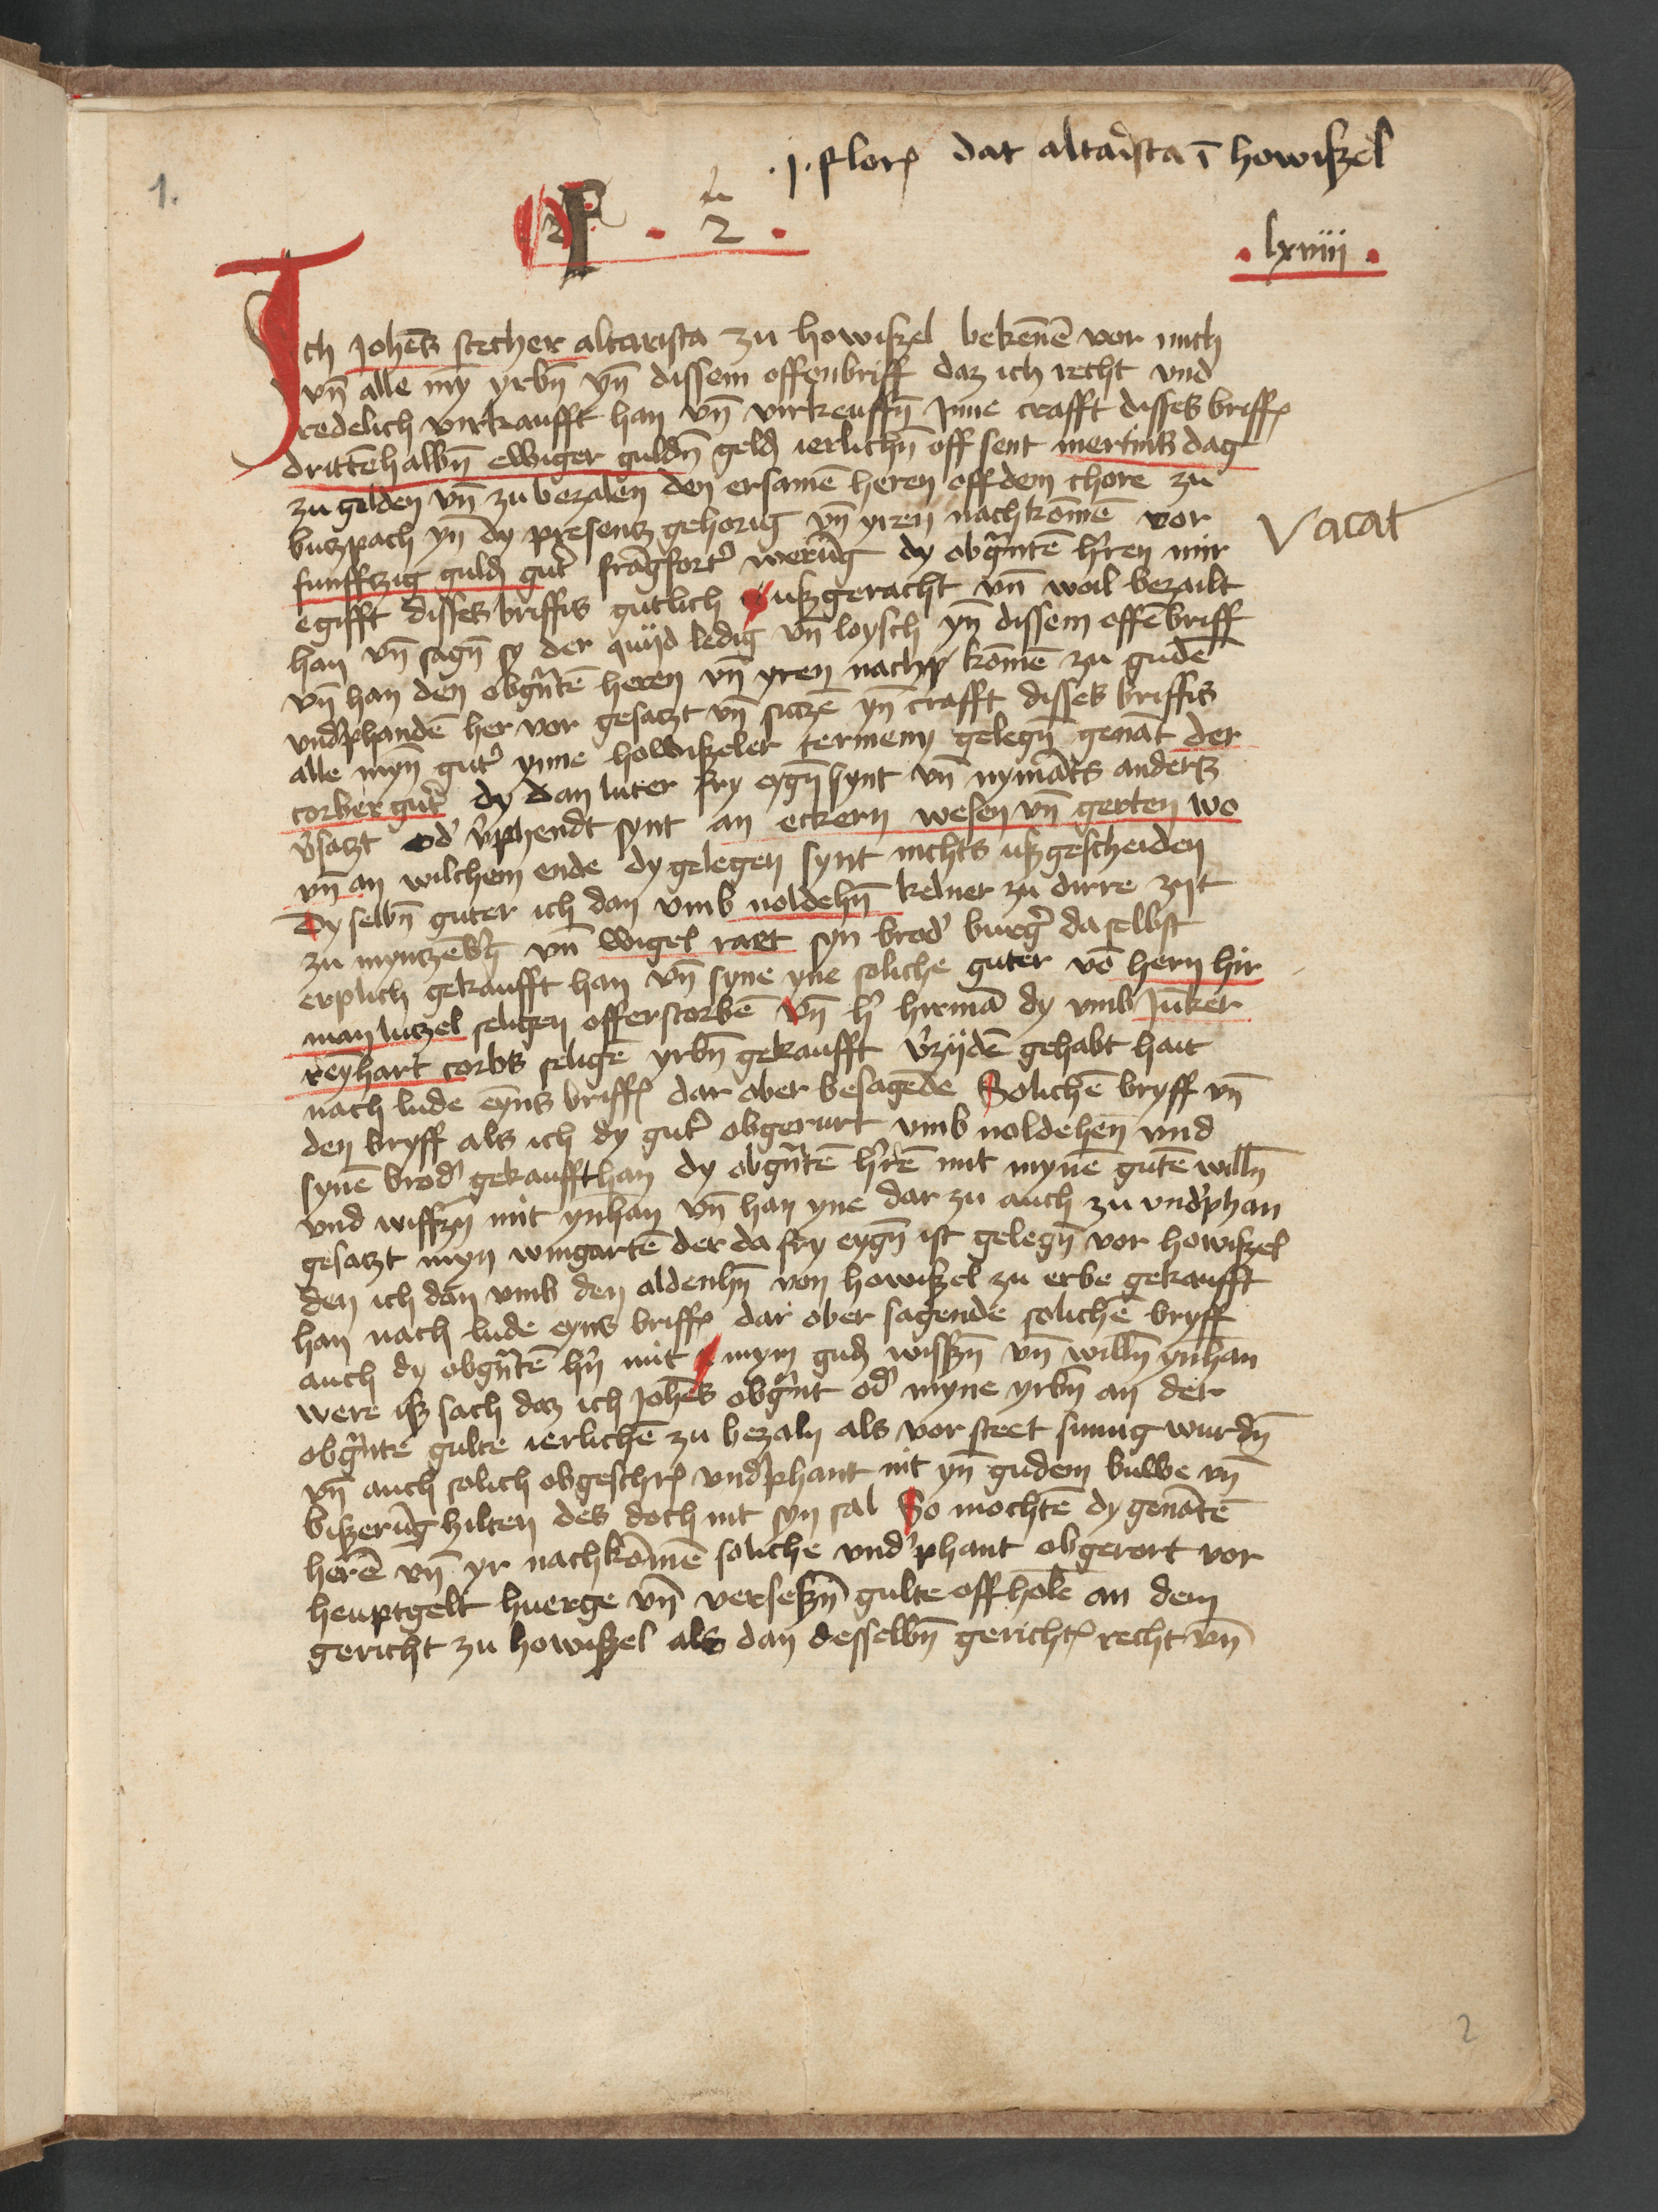 .j. flor dat altarista ī howißel
1.
2
. lxiiij .
Ich Johēs stecher altarista zu howißel bekēnē vor mich
vn̄ alle my̅ yrbn̄ yn̄ dissem offenbriff daz ich recht vnd
redelich virkaufft han vn̄ virkeuffn̄ Jnne crafft disses briff
drittēhalbn̄ ewiger guldn̄ geld ierlichn̄ off sent mertins dag
zu gelden vn̄ zu bezalen den ersamē heren off dem chore zu
butzpach yn̄ dy presentz gehorig vn̄ yren nachkōmē vor
Vacat
funfftzig guld gut' frāgfort' werūg dy obgn̄ntē h'ren mir
egifft disses briffis gutlich ußgeracht vn̄ woil bezailt
han vn̄ sagn̄ sy der quijd ledig vn̄ loysch yn̄ dissem offēbriff
vn̄ han den obgn̄tē heren vn̄ yren nach kōmē zu gudē
vnd'phandē her vor gesatzt vn̄ setzē yn̄ crafft disses briffis
alle myn̄ gut' ynne howißeler termeny gelegn̄ genāt der
corber gut' dy dan luter fry eygn̄ synt vn̄ nymāts anderß
v'satzt od' v'phendt synt an eckern wesen vn̄ gerten wo
vn̄ an wilchem ende dy gelegen synt nichts ußgescheiden
Dy selbn̄ guter ich dan vmb noldehn̄ kelner zu dirre zijt
zu myntzēb'g vn̄ wigel rart syn brod' burg' da selbst
erplich gekaufft han vn̄ syne yne soliche guter vō hern hir
man lutzel seligen offerstorbē vn̄ h' hirmā dy vmb Jūker
reyhart corbs seligē yrbn̄ gekaufft v'zijdē gehabt hait
nach lude eyns briff dar ober besagēde Solichē bryff vn̄
den bryff als ich dy gut' obgerurt vmb noldehen̄ vnd
synē brod' gekauffthan dy obgn̄tē h'rē mit mynē gutē willn̄
vnd wissn̄ mit ynhan vn̄ han yne dar zu auch zu vnd'phan
gesatzt myn wingartē der da fry eygn̄ ist gelegn̄ vor howißel
den ich dan vmb den aldenhn̄ von howißel zu erbe gekaufft
han nach lude eyns briff dar ober sagende solichē bryff
auch dy obgn̄tē hn̄ mit mym gud wissn̄ vn̄ willn̄ ynhan
were iß sach daz ich Johēs obgn̄nt od' myne yrbn̄ an der
obgn̄nte gulte ierlichē zu bezaln als vor steet sumig wurdn̄
vn̄ auch solich obgeschr vnd'phant nit yn̄ gudem buwe vn̄
bißerūg hilten des doch nit syn sal So mochtē dy genātē
herē vn̄ yr nachkōmē soliche vnd'phant obgerort vor
heuptgelt huerge vn̄ verseßn̄ gulte offholē an dem
gericht zu howißel als dan desselbn̄ gericht recht vn̄
2